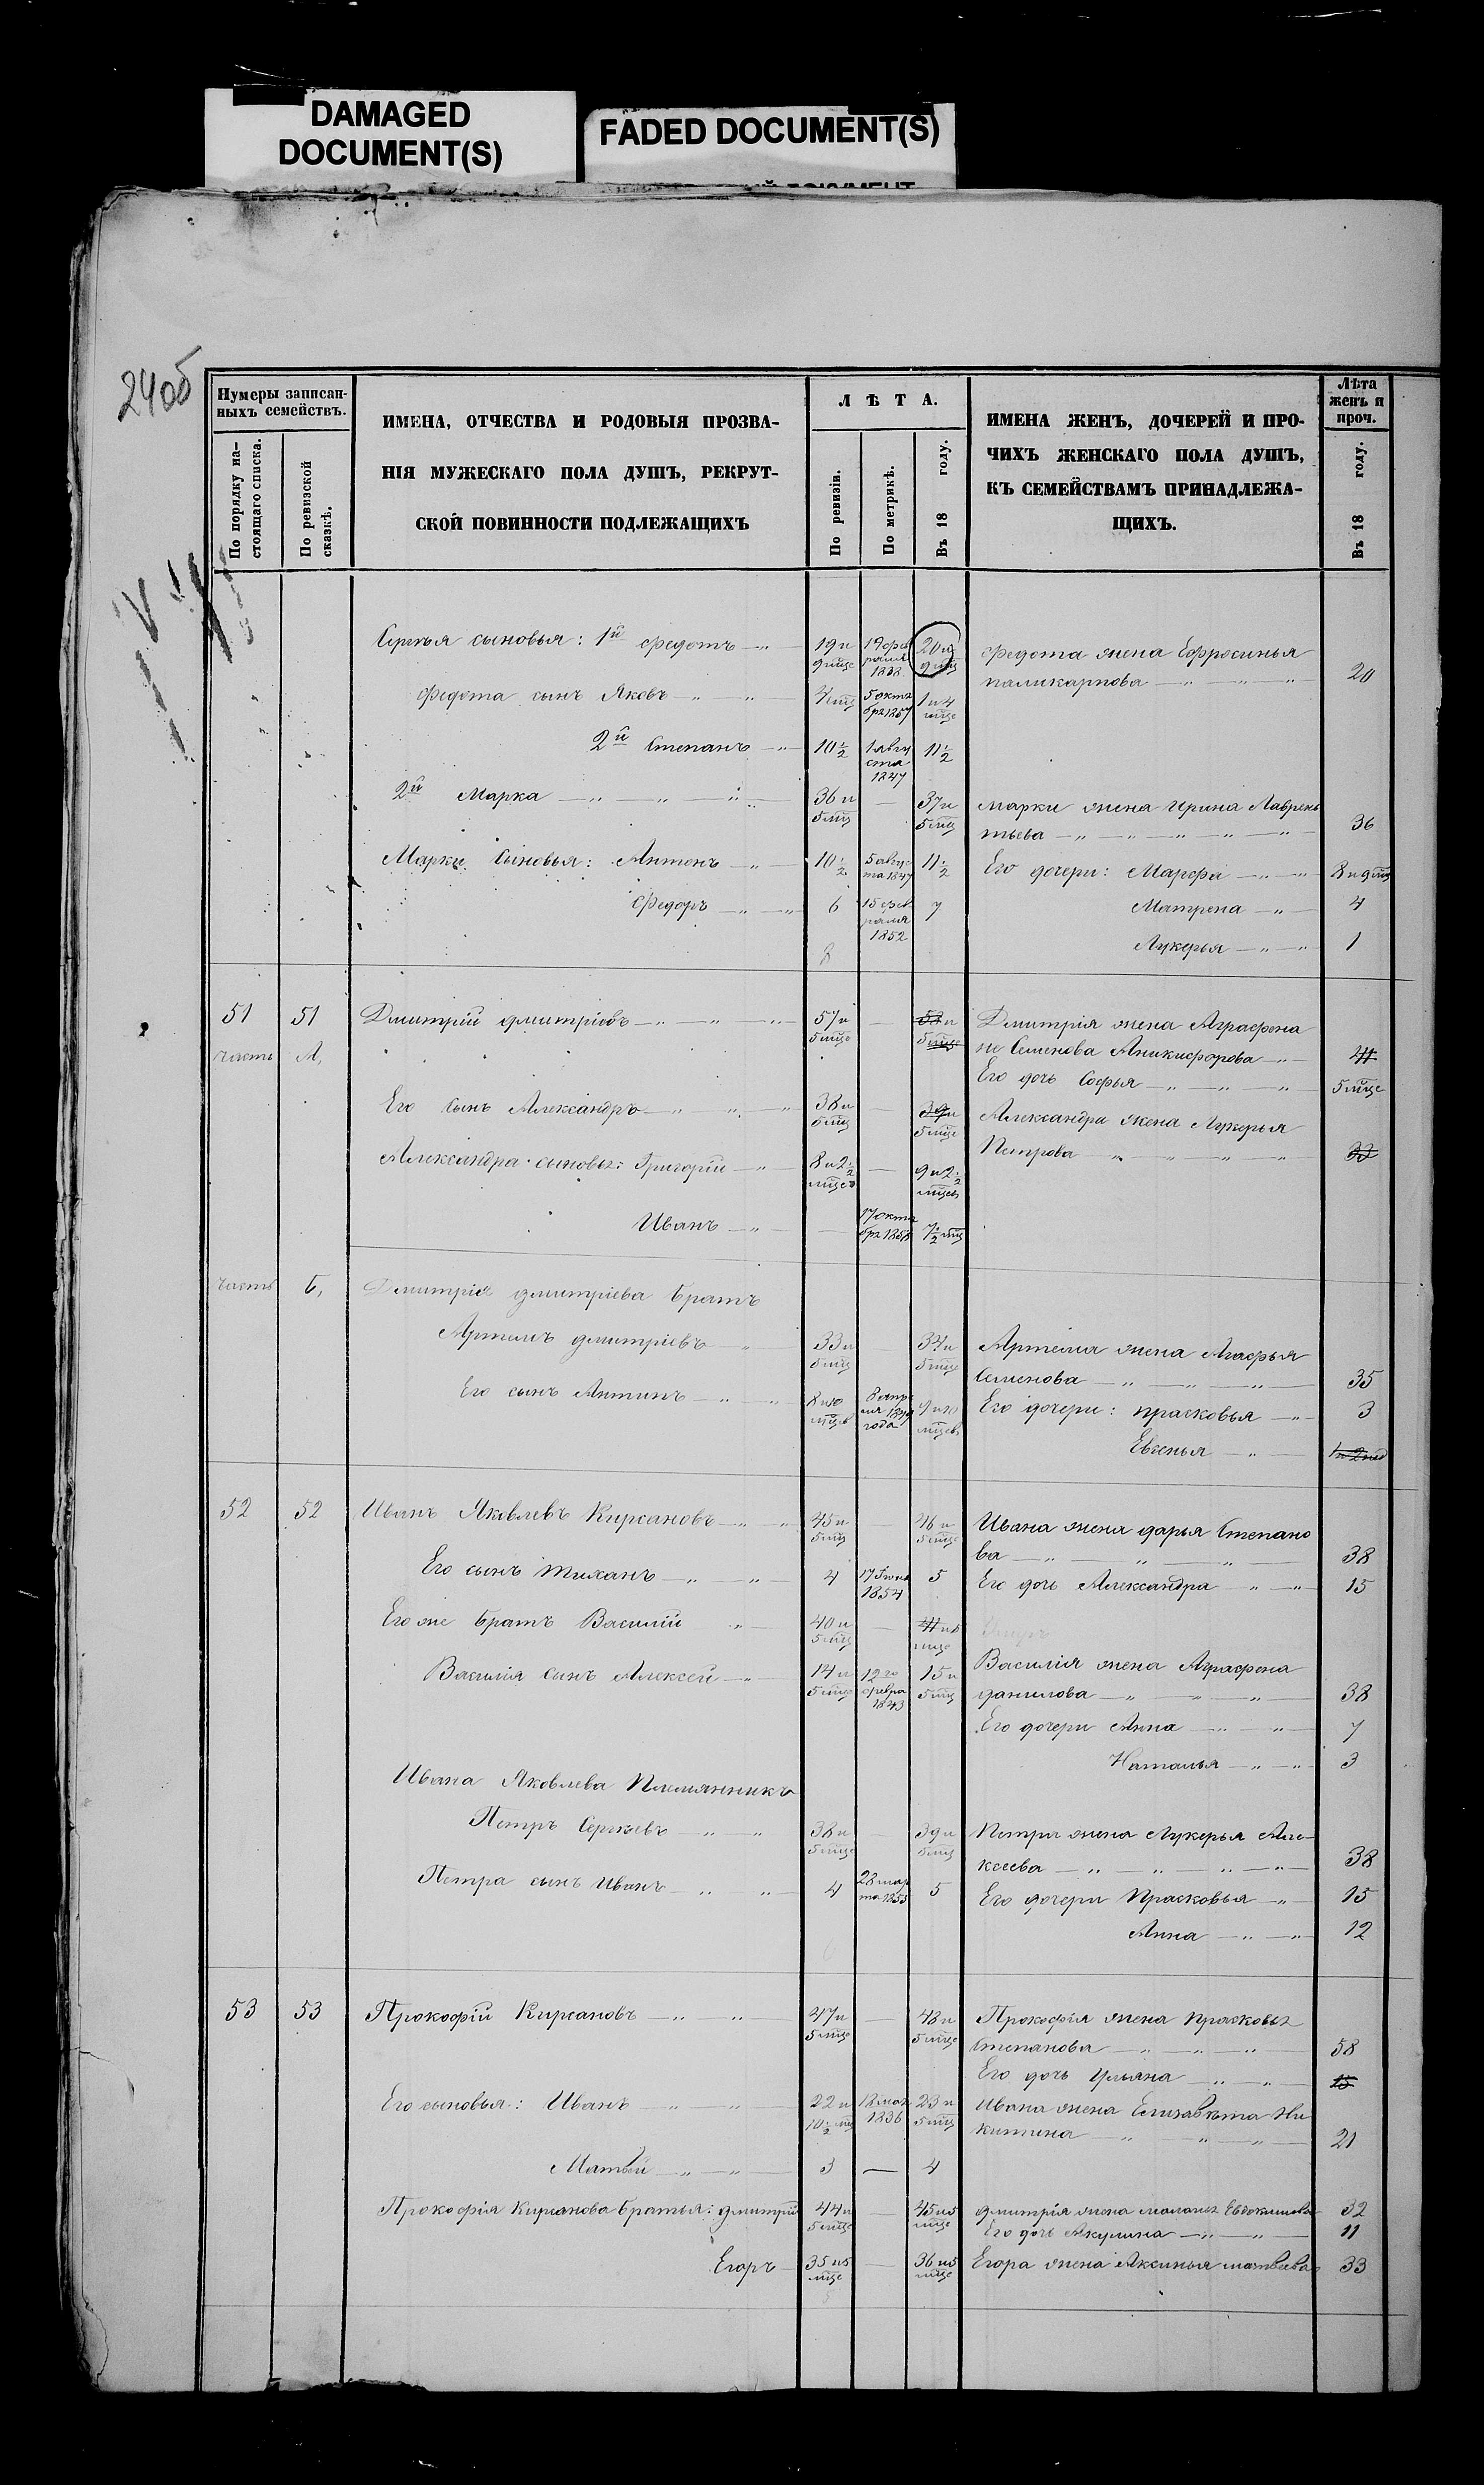 DAMAGED
DOCUMENT(S)
FADED DOCUMENT(S)
24об
Нумеры записан-
ныхъ семействъ.
По порядку на-
стоящаго списка.
По ревизской
сказкѣ.
ИМЕНА, ОТЧЕСТВА И РОДОВЫЯ ПРОЗВА-
НІЯ МУЖЕСКАГО ПОЛА ДУШЪ, РЕКРУТ-
СКОЙ ПОВИННОСТИ ПОДЛЕЖАЩИХЪ
ЛѢТА.
По ревизіи.
По метрикѣ.
Въ 18 году.
ИМЕНА ЖЕНЪ, ДОЧЕРЕЙ И ПРО-
ЧИХЪ ЖЕНСКАГО ПОЛА ДУШЪ,
КЪ СЕМЕЙСТВАМЪ ПРИНАДЛЕЖА-
ЩИХЪ.
Лѣта
женъ и
проч.
Въ 18 году.
Сергѣя сыновья: 1й Федотъ 19 и 9 мѣце 20 и 9 мѣц Федота жена Ефросинья
паликарпова 20
Федота сынъ Яковъ 4 мѣц 5 октя бря 1857 1 и 4 мѣце
2й Степанъ 10 1/2 1 авгу ста 1847 11 1/2
2й Марка 36 и 5 мѣц — 37 и 5 мѣц марки жена Ирина Лаврень
тьева 36
Марки сыновья: Антонъ 10 1/2 5 авгус та 1847 11 1/2 Его дочери: Марфа 8 и 9 мѣц
Федоръ 6 15 фев раля 1852 7 Матрена 4
8 Лукерья 1
51 51 Дмитрій дмитріевъ 57 и 5 мѣце — 58 и 5 мѣце Дмитрія жена Аграфена
часть А, Семенова Аникифорова
Его дочь Софья 5 мѣце
Его сынъ Александръ 38 и 5 мѣц — 39 и 5 мѣце Александра жена Лукерья
Петрова
Александра сыновья: Григорій 8 и 2 1/2 мѣцев — 9 и 2 1/2 мѣцев
Иванъ — 17 октя бря 1858 7 1/2 мѣц
часть Б, Дмитрія дмитріева братъ
Артемъ дмитріевъ 33 и 5 мѣц — 34 и 5 мѣце Артема жена Агафья
Семенова 35
Его сынъ Антипъ 8 и 10 мѣцев 8 апре ля 1849 года 9 и 10 мѣцев Его дочери: прасковья 3
Евгенья
52 52 Иванъ Яковлевъ Кирсановъ 45 и 5 мѣц — 46 и 5 мѣце Ивана жена дарья Степано
ва 38
Его сынъ тиханъ 4 1854 5 Его дочь Александра 15
Его же братъ Василій 40 и 5 мѣц — 41 и 5 мѣце
Василія сынъ Алексей 14 и 5 мѣце 12го февра 1843 15 и 5 мѣц Василія жена Аграфена
данилова 38
Его дочери Анна 7
Наталья 3
Ивана Яковлева Племянникъ
Петръ Сергѣевъ 38 и 5 мѣце — 39 и 5 мѣц Петра жена Лукерья Але-
ксеева 38
Петра сынъ Иванъ 4 28 мар та 1855 5 Его дочери Прасковья 15
Анна 12
53 53 Прокофій Кирсановъ 47 и 5 мѣце — 48 и 5 мѣце Прокофія жена прасковья
Степанова 58
Его дочь Ульяна 15
Его сыновья: Иванъ 22 и 10 1/2 мѣц 18 мая 1836 23 и 5 мѣц Ивана жена Елизавѣта Ни
китина 21
Матвѣй 3 — 4
Прокофія Кирсанова братья: дмитрій 44 и 5 мѣце — 45 и 5 мѣце дмитрія жена маланья Евдокимова 32
Его дочь Акулина 11
Егоръ 35 и 5 мѣце — 36 и 5 мѣце Егора жена Аксинья матвѣева 33